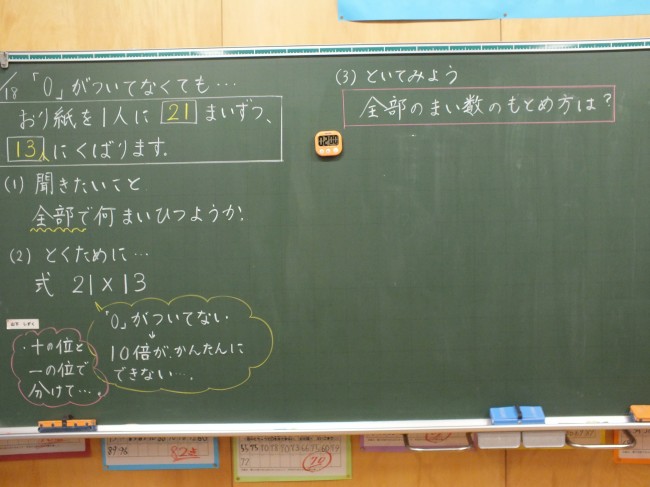 /18 「0」がついてなくても…
おり紙を1人に 21 まいずつ、
13人にくばります。
(1) 聞きたいこと
全部で何まいひつようか。
(2) とくために…
式 21×13
「0」がついてない
↓
10倍が、かんたんに
できない…。
・十の位と
一の位で
分けて…。
(3) といてみよう
全部のまい数のもとめ方は?
02:00
89.96
82点